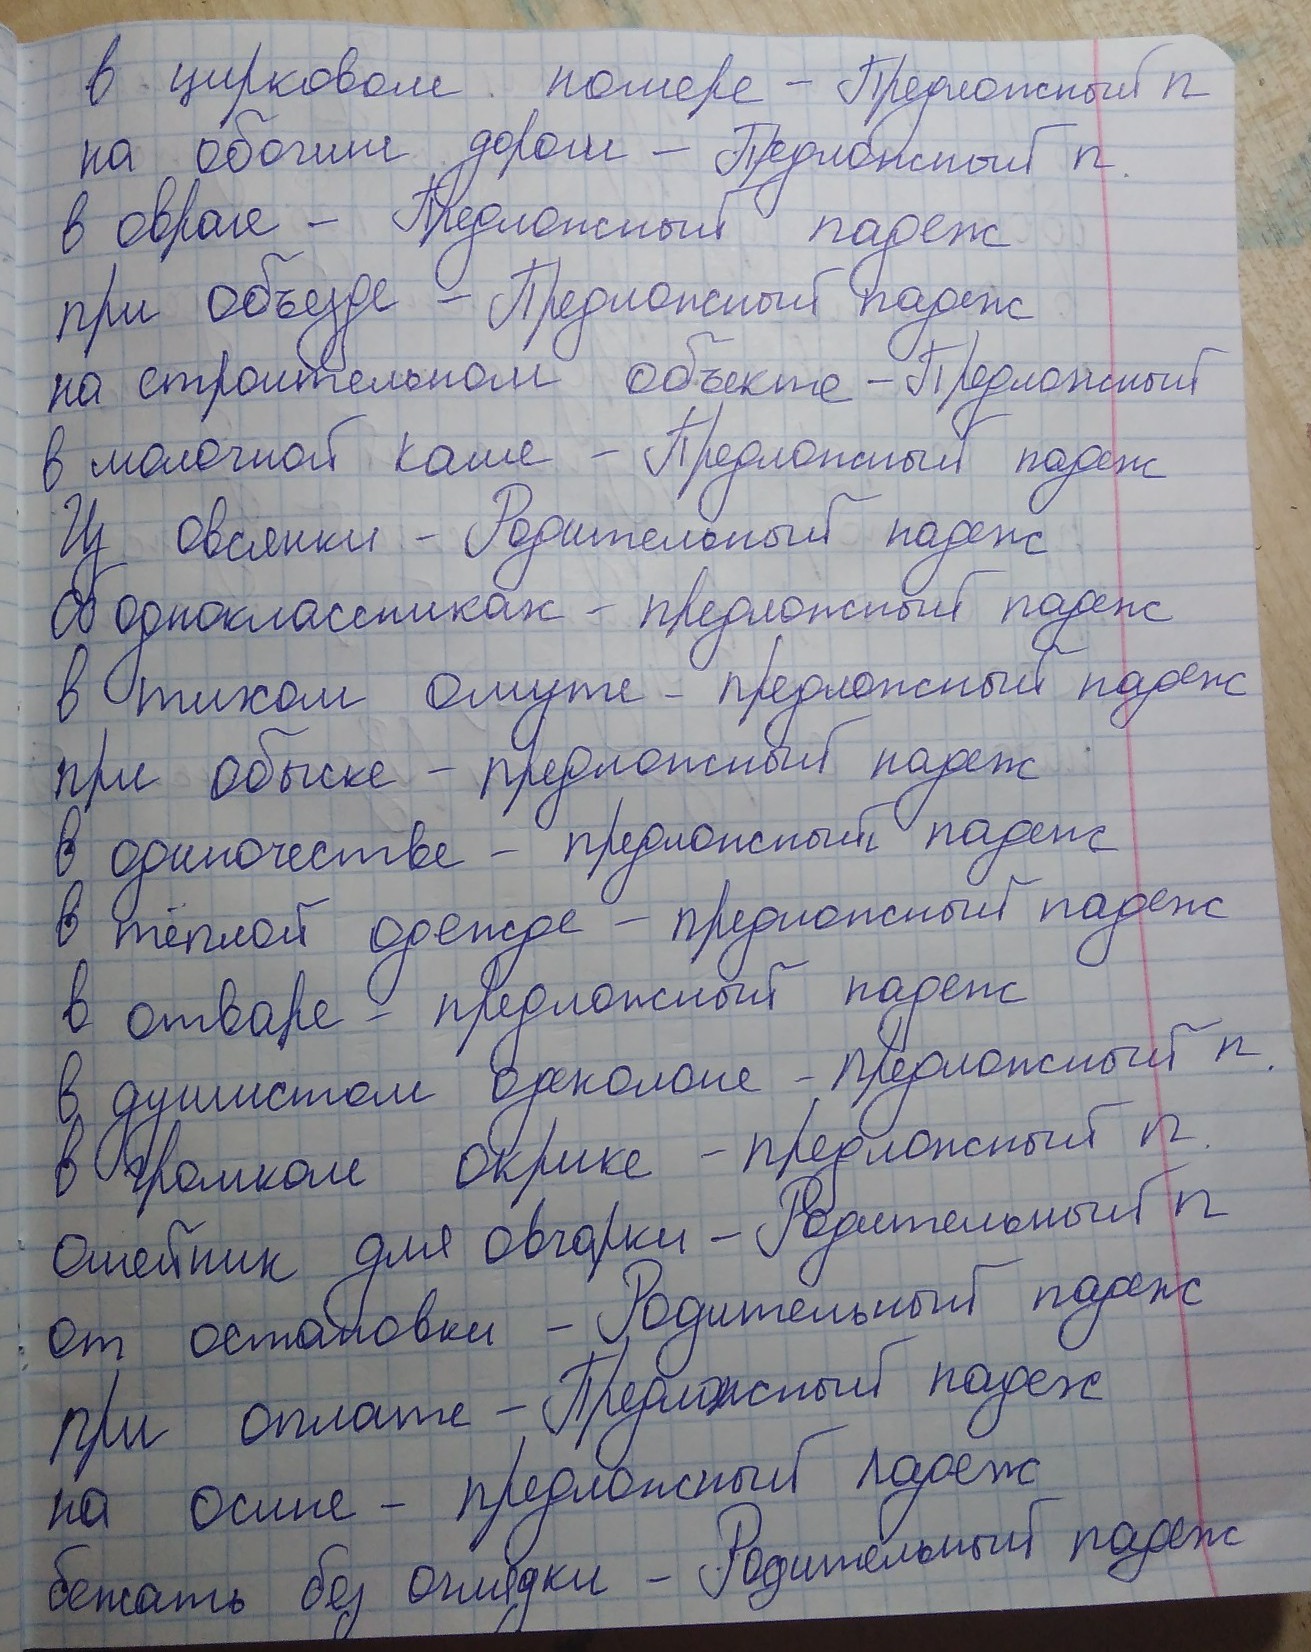 в цирковом номере – Предложный п
на обочине дороги – Предложный п.
в овраге – Предложный падеж
при объезде – Предложный падеж
на строительном объекте – Предложный
в молочной каше – Предложный падеж
Из овсянки – Родительный падеж
Об одноклассниках – предложный падеж
в тихом омуте – предложный падеж
при обыске – предложный падеж
в одиночестве – предложный падеж
в тёплой одежде – предложный падеж
в отваре – предложный падеж
в душистом одеколоне – предложный п.
в громком окрике – предложный п.
ошейник для овчарки – Родительный п
от остановки – Родительный падеж
при оплате – Предложный падеж
на осине – предложный падеж
бежать без оглядки – Родительный падеж